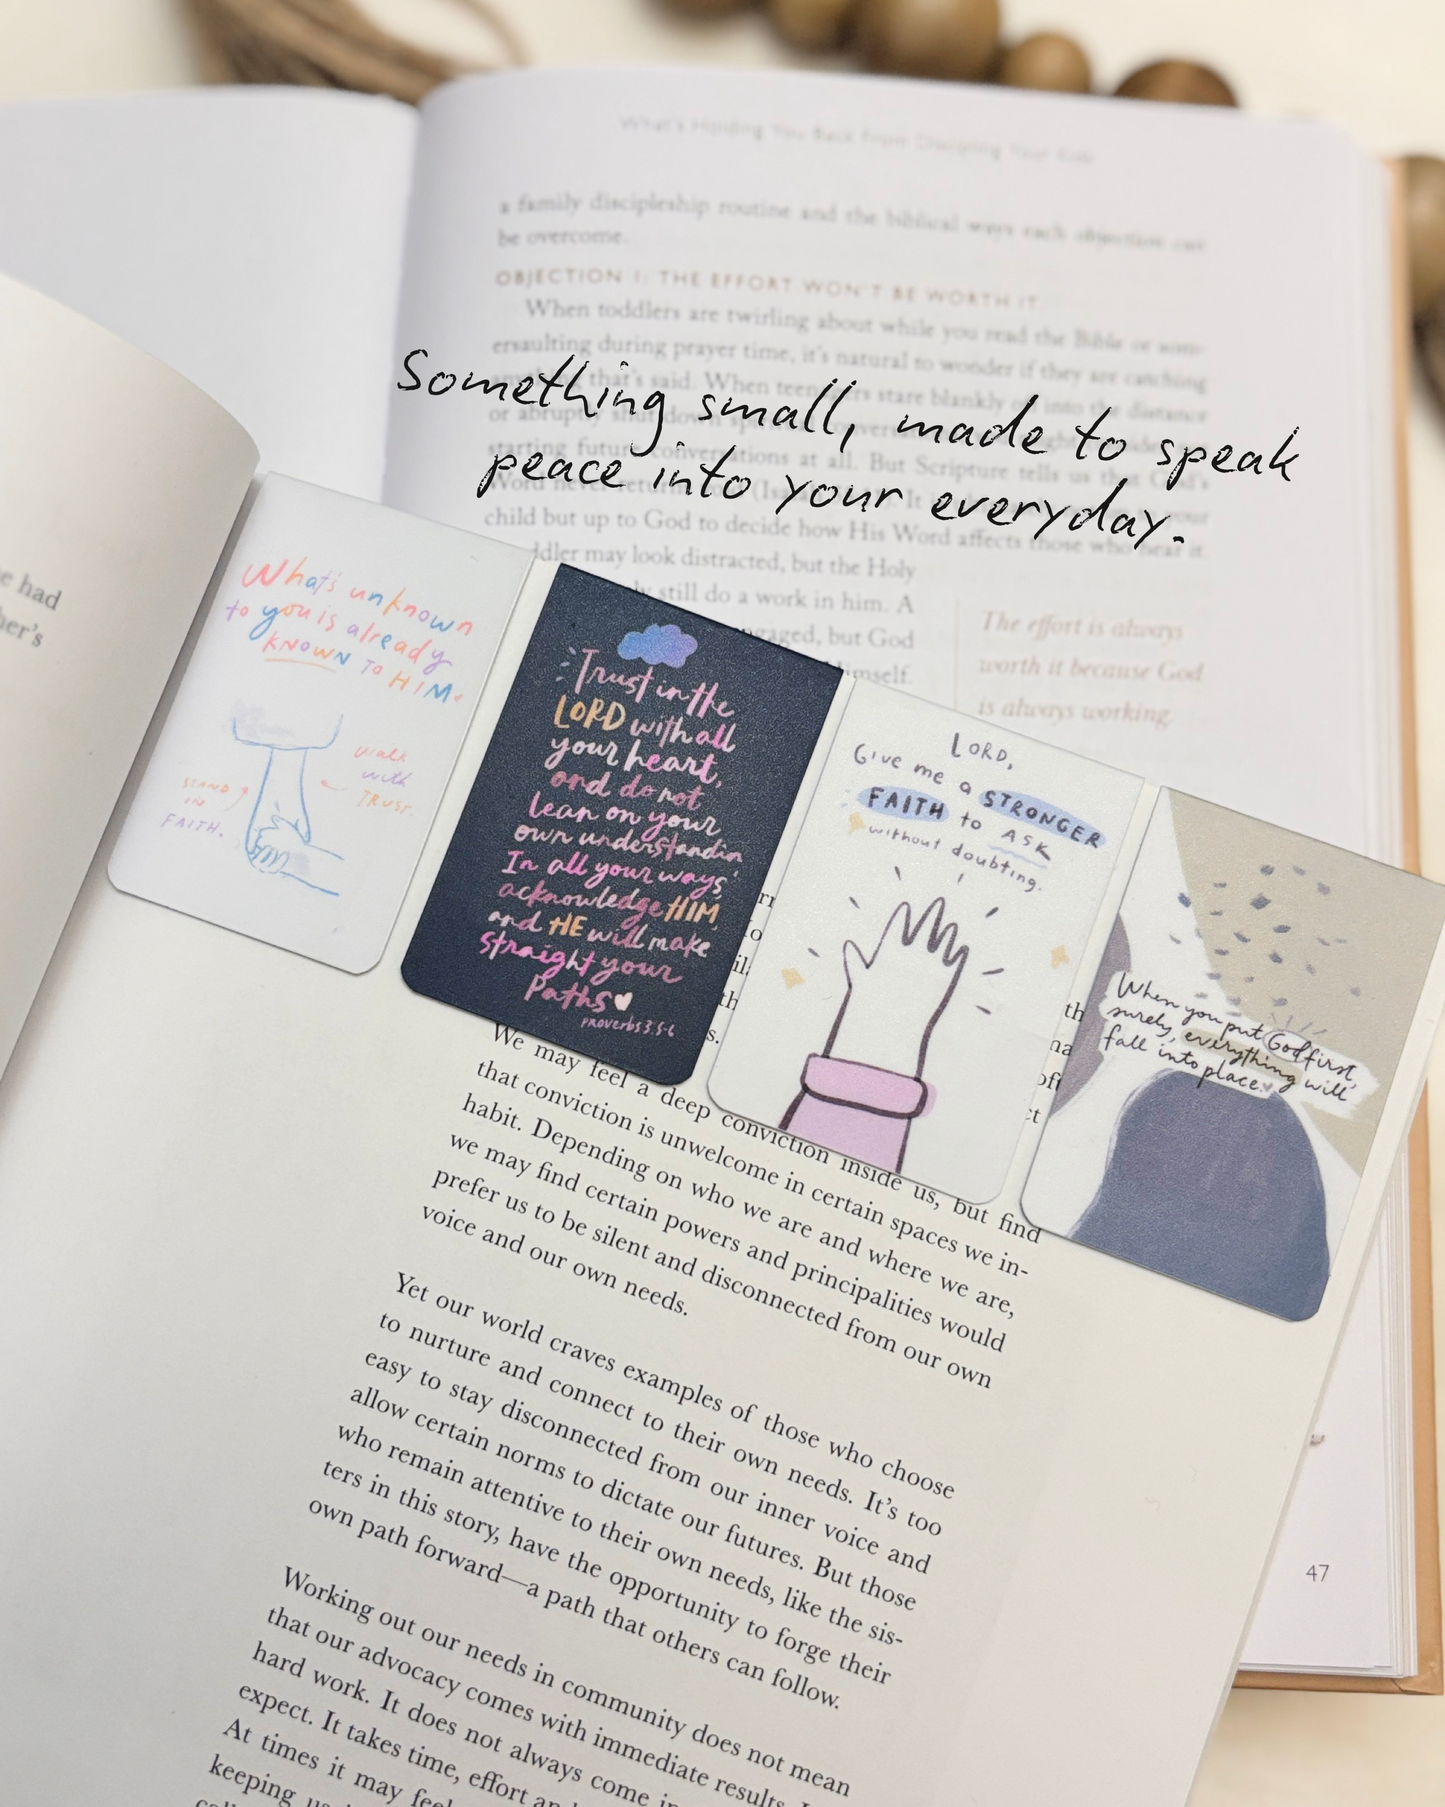 What's Holding You Back From Discipling Your Kids
a family discipleship routine and the biblical ways each objection can
be overcome.
OBJECTION 1: THE EFFORT WON'T BE WORTH IT.
When toddlers are twirling about while you read the Bible or som-
ersaulting during prayer time, it's natural to wonder if they are catching
that's said. When teenagers stare blankly into the distance
or abruptly shut down
starting future conversations at all. But Scripture tells us that God's
Word never
child but up to God to decide how His Word affects those who hear it.
may look distracted, but the Holy
still do a work in him. A
but God
The effort is always
worth it because God
is always working.
Something small, made to speak
peace into your everyday.
e had
her's
What's unknown
to you is already
KNOWN TO HIM.
STAND
IN
FAITH.
Walk
with
TRUST.
Trust in the
LORD with all
your heart,
and do not
lean on your
own understandin
In all your ways
acknowledge HIM,
and HE will make
straight your
Paths
proverbs 3:5-6
LORD,
Give me a STRONGER
FAITH to ASK
without doubting.
When you put God first,
surely, everything will
fall into place.
We may feel a deep conviction inside us, but find
that conviction is unwelcome in certain spaces we in-
habit. Depending on who we are and where we are,
we may find certain powers and principalities would
prefer us to be silent and disconnected from our own
voice and our own needs.
Yet our world craves examples of those who choose
to nurture and connect to their own needs. It's too
easy to stay disconnected from our inner voice and
allow certain norms to dictate our futures. But those
who remain attentive to their own needs, like the sis-
ters in this story, have the opportunity to forge their
own path forward—a path that others can follow.
Working out our needs in community does not mean
that our advocacy comes with immediate results.
hard work. It does not always come
expect. It takes time, effort
At times it may
keeping
47